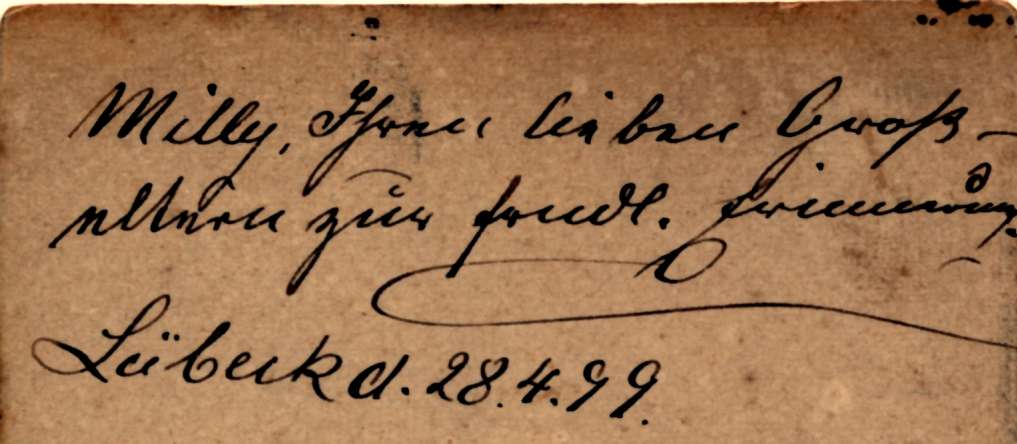 Milly, Ihren lieben Groß-
eltern zur frndl. Erinnerung.
Lübeck d. 28.4.99.